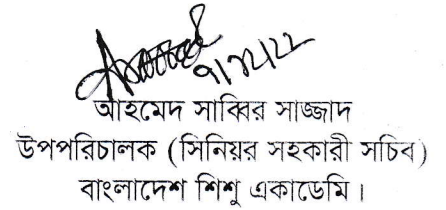 ৭/১২/২২
আহমেদ সাব্বির সাজ্জাদ
উপপরিচালক (সিনিয়র সহকারী সচিব)
বাংলাদেশ শিশু একাডেমি।